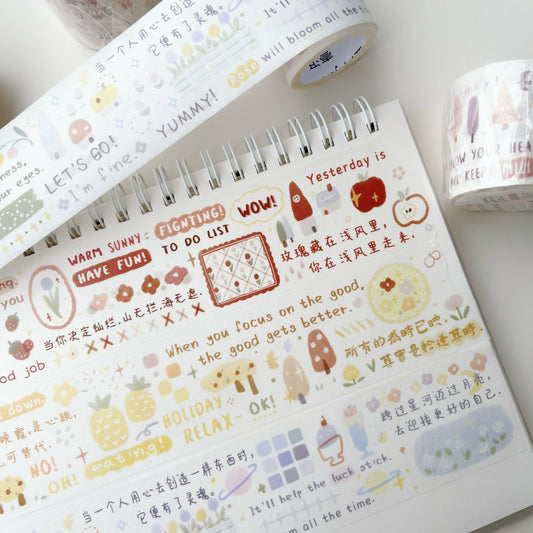 当一个人用心去创造
它便有了灵魂。
It'll
Rose will bloom all the time.
YUMMY!
LET'S GO!
I'm fine.
your eyes.
KNOW YOUR HEA
KEEP
Yesterday is
WOW!
FIGHTING!
WARM SUNNY
HAVE FUN!
TO DO LIST
玫瑰藏在浅风里,
你在浅风里走来.
you
当你决定灿烂,山无拦,海无遮.
good job
When you focus on the good,
the good gets better.
所有的為時已晚
其實是恰逢其時.
down.
晚霞,是心跳,
可替代.
HOLIDAY
RELAX-
OK!
NO!
OH!
eating!
跨过星河迈过月亮,
去迎接更好的自己.
当一个人用心去创造一样东西时,
它便有了灵魂。
It'll help the luck stick.
all the time.